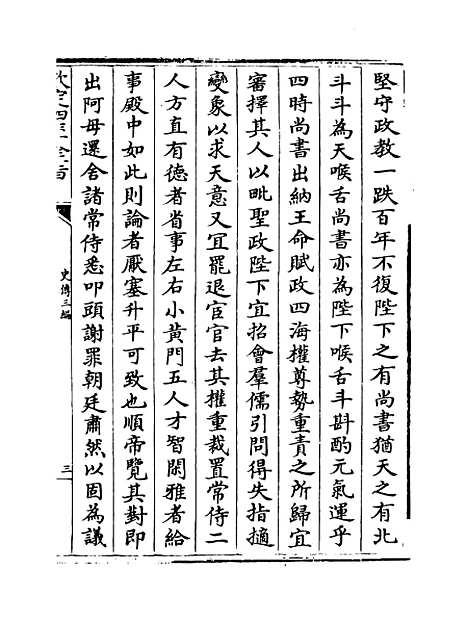 堅守政教一跌百年不復陛下之有尚書猶天之有北
斗斗為天喉舌尚書亦為陛下喉舌斗斟酌元氣運乎
四時尚書出納王命賦政四海權尊勢重責之所歸宜
審擇其人以毗聖政陛下宜招會羣儒引問得失指擿
變象以求天意又宜罷退宦官去其權重裁置常侍二
人方直有德者省事左右小黃門五人才智閑雅者給
事殿中如此則論者厭塞升平可致也順帝覽其對即
出阿母還舍諸常侍悉叩頭謝罪朝廷肅然以固為議
欽定四庫全書
史傳三編
三